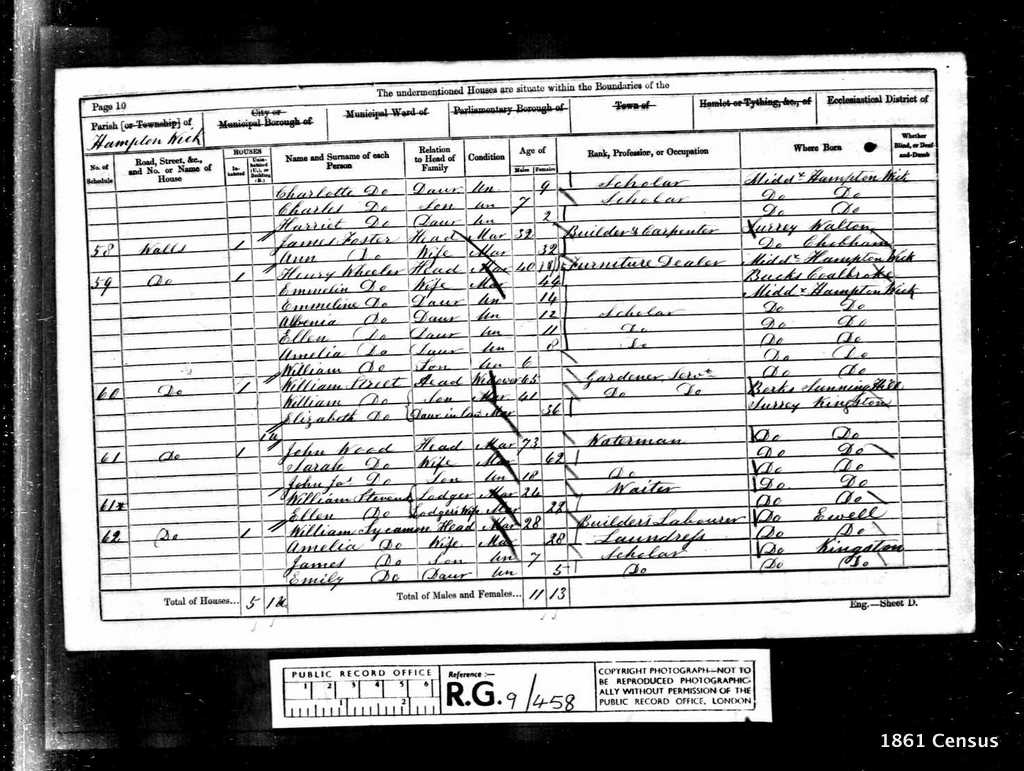 The undermentioned Houses are situate within the Boundaries of the
Page 10
Parish [or Township] of
Hampton Wick
City or Municipal Borough of
Municipal Ward of
Parliamentary Borough of
Town of
Hamlet or Tything, &c., of
Ecclesiastical District of
No. of Schedule
Road, Street, &c., and No. or Name of House
HOUSES
Inhabited
Uninhabited (U.), or Building (B.)
Name and Surname of each Person
Relation to Head of Family
Condition
Age of
Males
Females
Rank, Profession, or Occupation
Where Born
Whether Blind, or Deaf-and-Dumb
Charlotte Do Daur Un 9 Scholar Middx Hampton Wick
Charles Do Son Un 7 Scholar Do Do
Harriet Do Daur Un 2 Do Do
58 Walls 1 James Foster Head Mar 32 Builder's Carpenter Surrey Walton
Ann Do Wife Mar 32 Do Chobham
59 Do 1 Henry Wheeler Head Mar 40 Furniture Dealer Middx Hampton Wick
Emmelin Do Wife Mar 44 Bucks Coalbroke
Emmeline Do Daur Un 14 Middx Hampton Wick
Albenia Do Daur Un 12 Scholar Do Do
Ellen Do Daur Un 11 Do Do Do
Amelia Do Daur Un 8 Do Do Do
William Do Son Un 6 Do Do
60 Do 1 William Street Head Widower 65 Gardener Servt Do Do
William Do Son Mar 41 Do Do Berks Sunning Hill
Elizabeth Do Daur in law Mar 36 Surrey Kingston
1 U
61 Do 1 John Wood Head Mar 73 Waterman Do Do
Sarah Do Wife Mar 62 Do Do
John Jas Do Son Un 18 Do Do Do
61* William Stevens Lodger Mar 24 Waiter Do Do
Ellen Do Lodger's Wife Mar 22 Do Do
62 Do 1 William Sycamore Head Mar 28 Builder's Labourer Do Ewell
Amelia Do Wife Mar 28 Laundress Do Do
James Do Son Un 7 Scholar Do Kingston
Emily Do Daur Un 5 Do Do Do
Total of Houses... 5 1U
Total of Males and Females... 11 13
Eng.—Sheet D.
PUBLIC RECORD OFFICE
1 2 3 4 5 6
1 2
Reference :—
R.G. 9/458
COPYRIGHT PHOTOGRAPH—NOT TO
BE REPRODUCED PHOTOGRAPHIC-
ALLY WITHOUT PERMISSION OF THE
PUBLIC RECORD OFFICE, LONDON
1861 Census